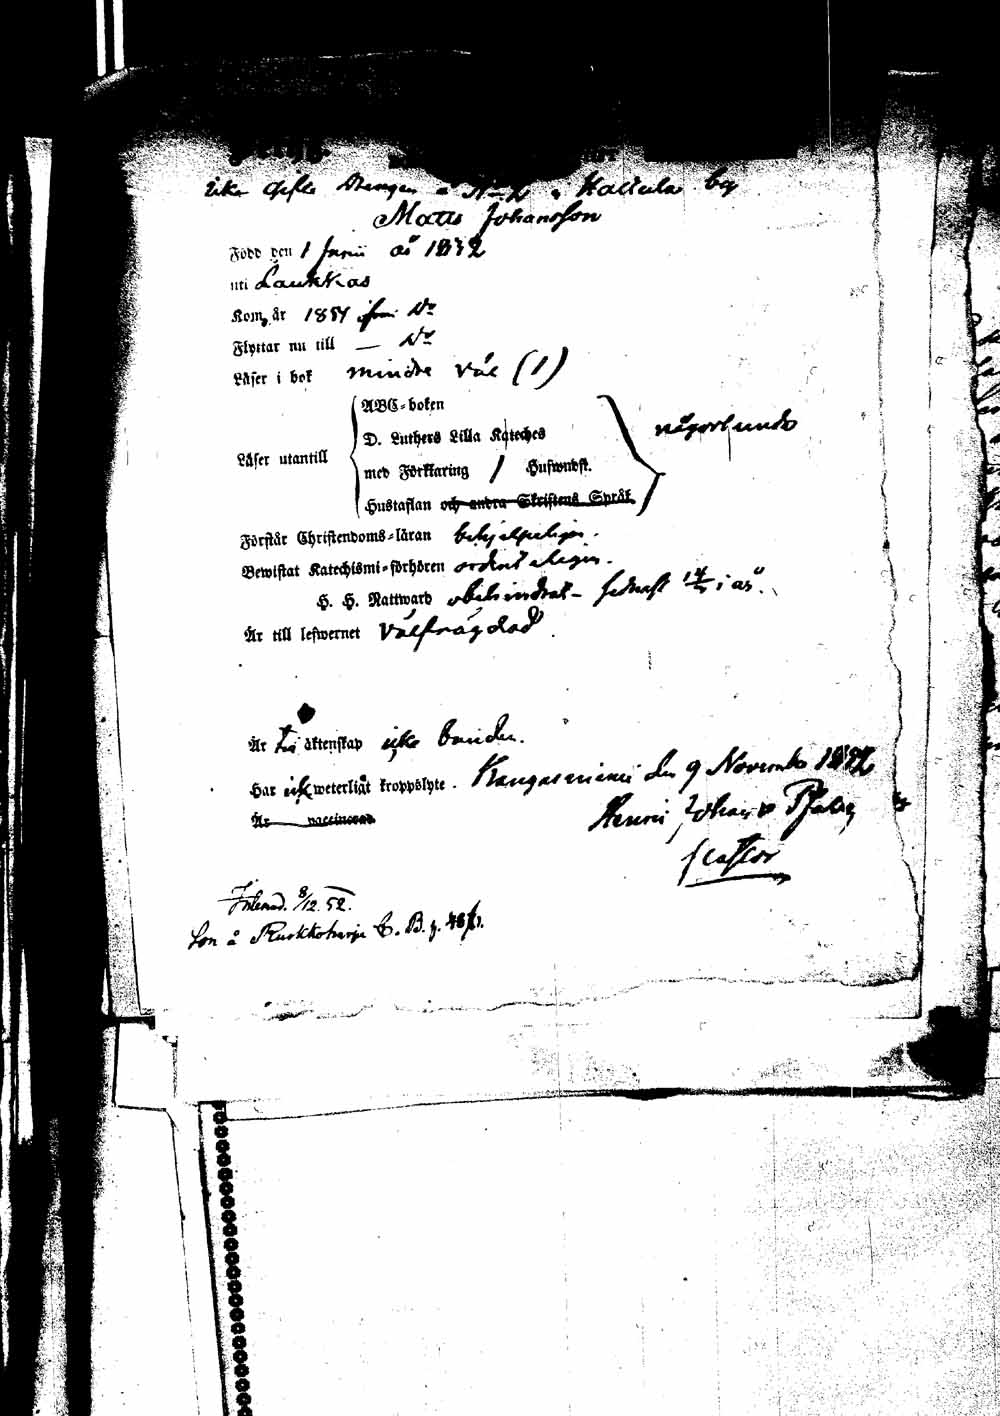 icke gifte Drengen å No 2 i Kallula by
Matts Johansson
Född den 1 Junii år 1832
uti Laukkas
Kom år 1851 ifrån Do
Flyttar nu till — Do
Läser i bok mindre väl (1)
ABC-boken
D. Luthers Lilla Kateches
Läser utantill med Förklaring / Huswudst. någorlunda
Hustaflan och andra Skriftens Språk
Förstår Christendoms-läran behjelpeligen.
Bewistat Katechismi-förhören ordenteligen.
H. H. Nattward obehindrat - senast i år.
Är till lefwernet välfrägdad
Är till äktenskap icke bunden.
Har ick weterligt kroppslyte. Kangasniemi den 9 November 1852
Är vaccinerad
Henric Johan
Pastor
Inlemnad. 8/12. 52.
C. B. p.